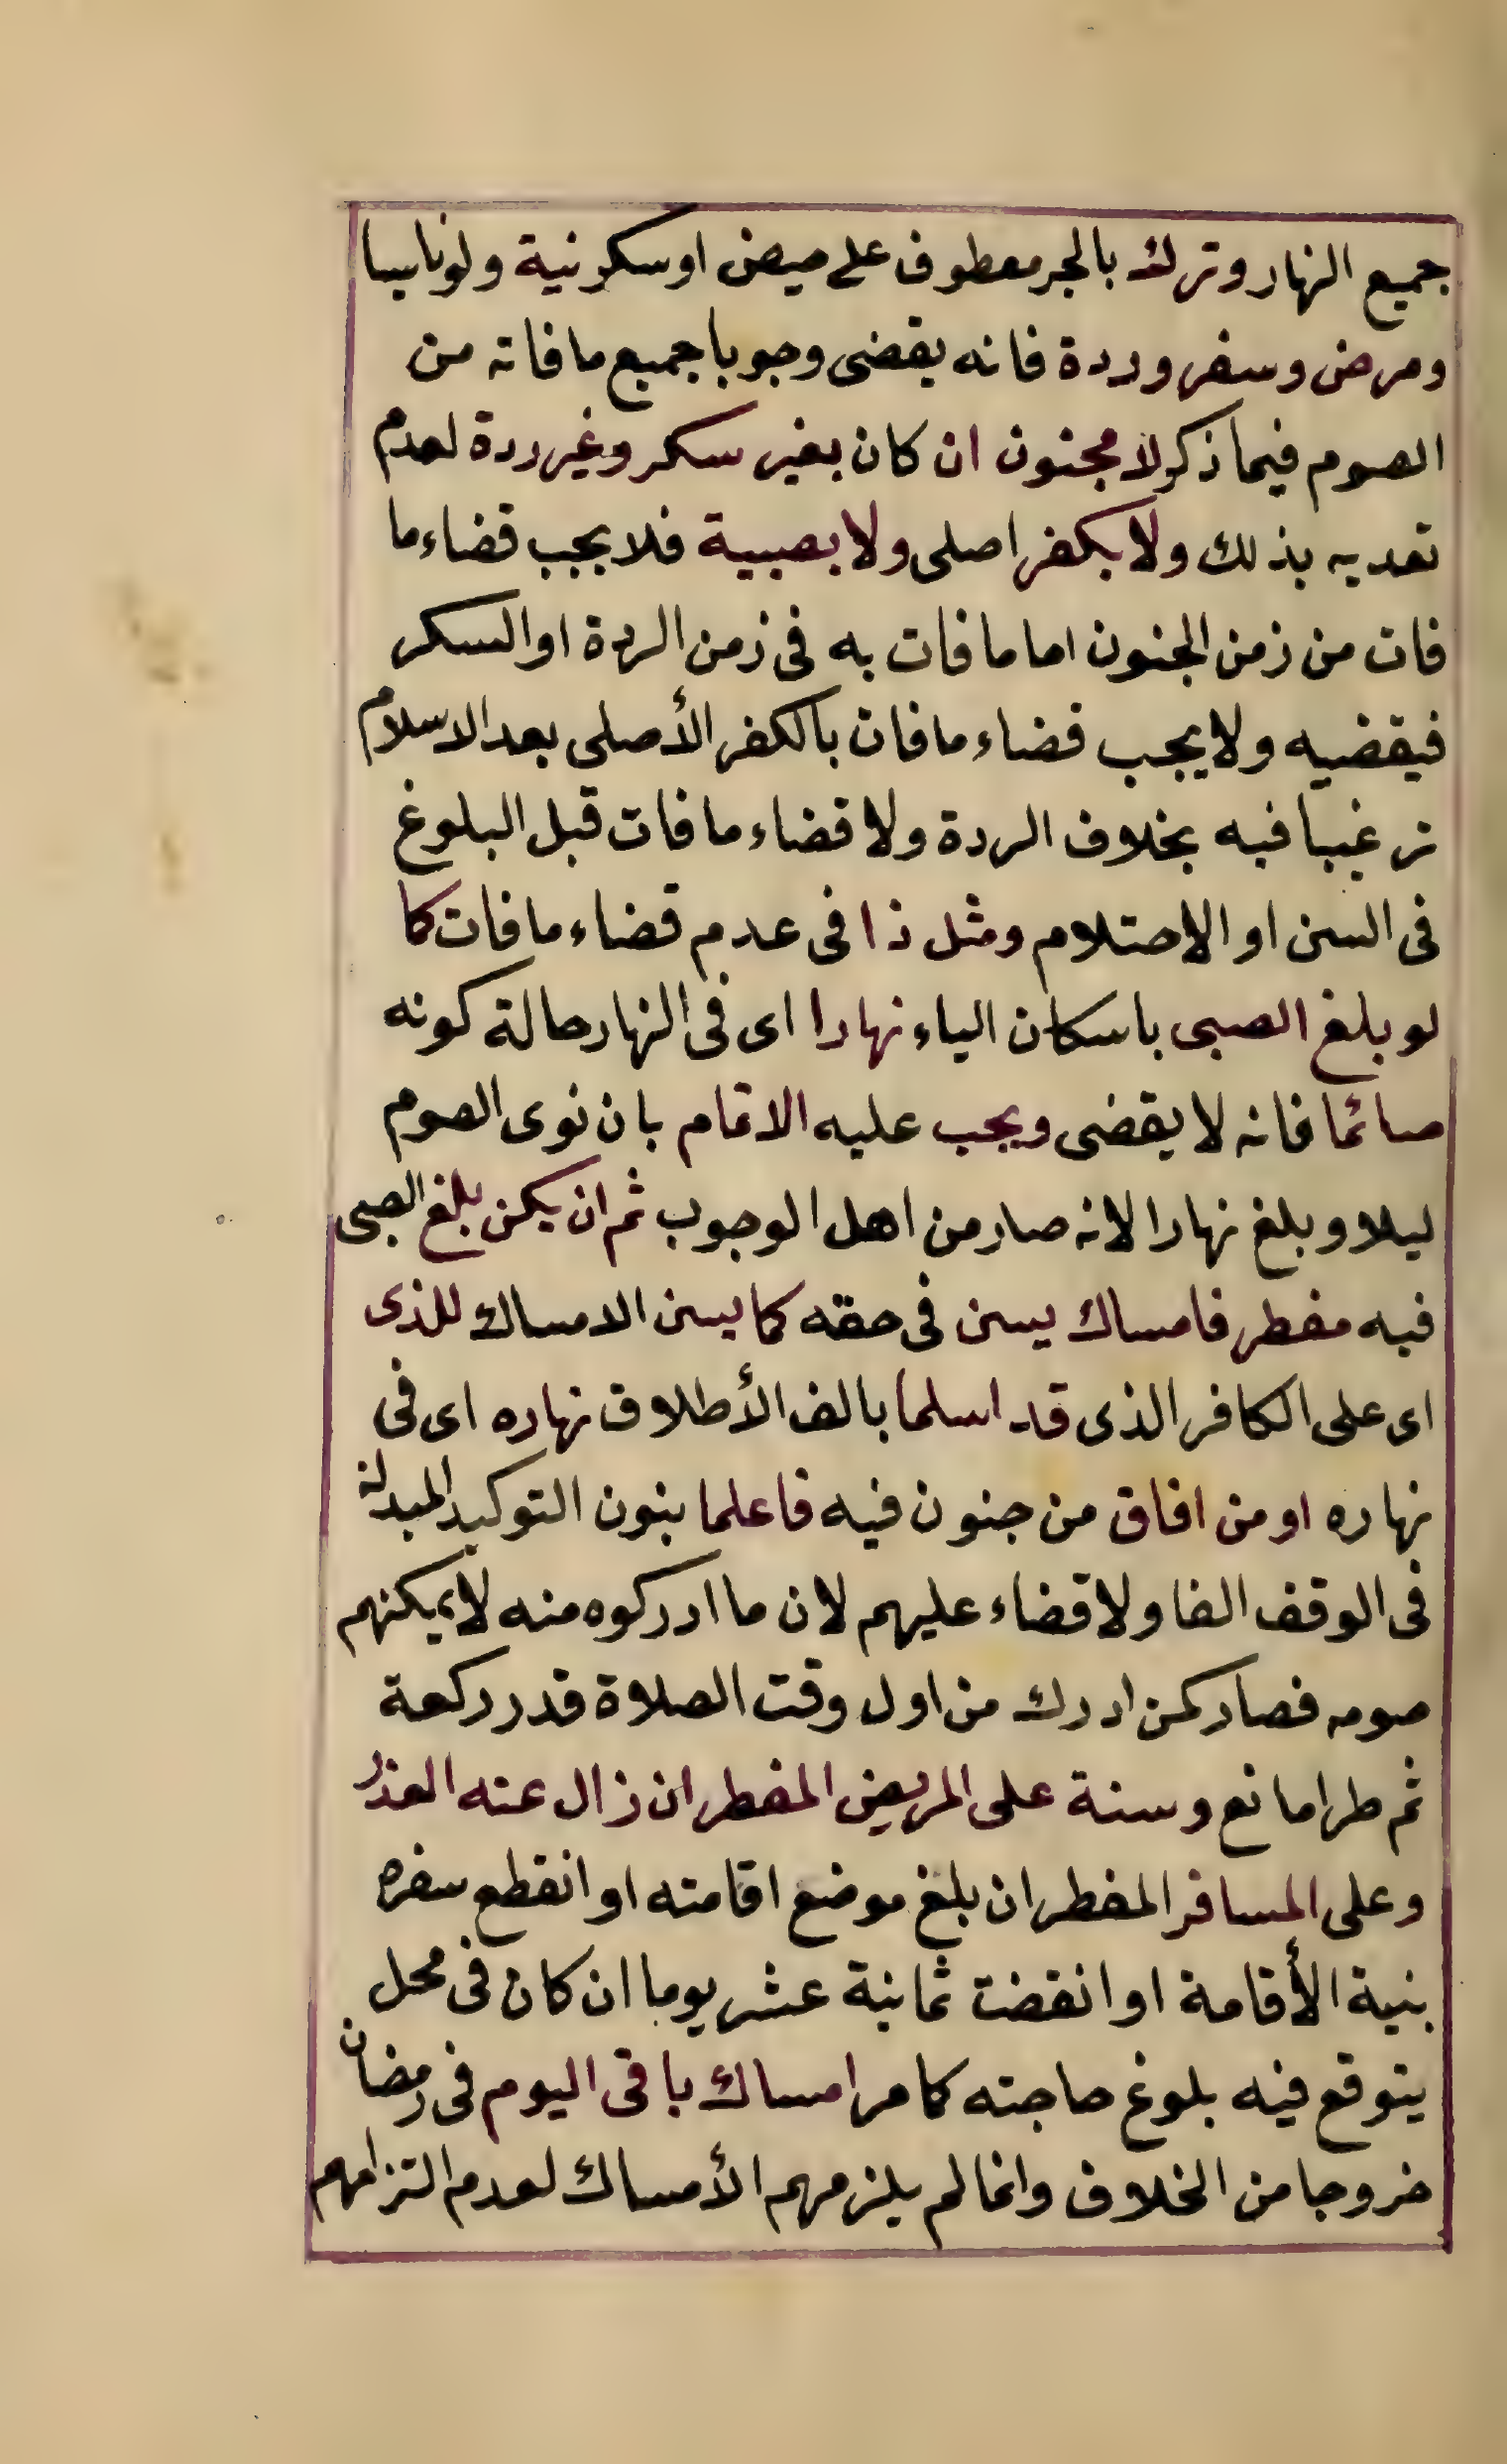 جميع النهار وترك بالجر معطوف على حيض او سكر نية ولو ناسيا
ومرض وسفر وردة فانه يقضى وجوبا جميع ما فاته من
الصوم فيما ذكر لا مجنون ان كان بغير سكر وغير ردة لعدم
تعديه بذلك ولا بكفر اصلى ولا بصبية فلا يجب قضاء ما
فات من زمن الجنون اما ما فات به فى زمن الردة او السكر
فيقضيه ولا يجب قضاء ما فات بالكفر الأصلى بعد الاسلام
ترغيبا فيه بخلاف الردة ولا قضاء ما فات قبل البلوغ
فى السن او الاحتلام ومثل ذا فى عدم قضاء ما فات كما
لو بلغ الصبى باسكان الياء نهارا اى فى النهار حالة كونه
صائما فانه لا يقضى ويجب عليه الاتمام بان نوى الصوم
ليلا وبلغ نهارا لانه صار من اهل الوجوب ثم ان يكن بلغ الصبى
فيه مفطر فامساك يسن فى حقه كما يسن الامساك للذى
اى على الكافر الذى قد اسلما بالف الأطلاق نهاره اى فى
نهاره او من افاق من جنون فيه فاعلما بنون التوكيد المبدلة
فى الوقف الفا ولا قضاء عليهم لان ما ادركوه منه لا يمكنهم
صومه فصار كمن ادرك من اول وقت الصلاة قدر ركعة
ثم طرا مانع وسنة على المريض المفطر ان زال عنه العذر
وعلى المسافر المفطر ان بلغ موضع اقامته او انقطع سفره
بنية الأقامة او انقضت ثمانية عشر يوما ان كان فى محل
يتوقع فيه بلوغ حاجته كما مر امساك باقى اليوم فى رمضان
خروجا من الخلاف وانما لم يلزمهم الأمساك لعدم التزامهم